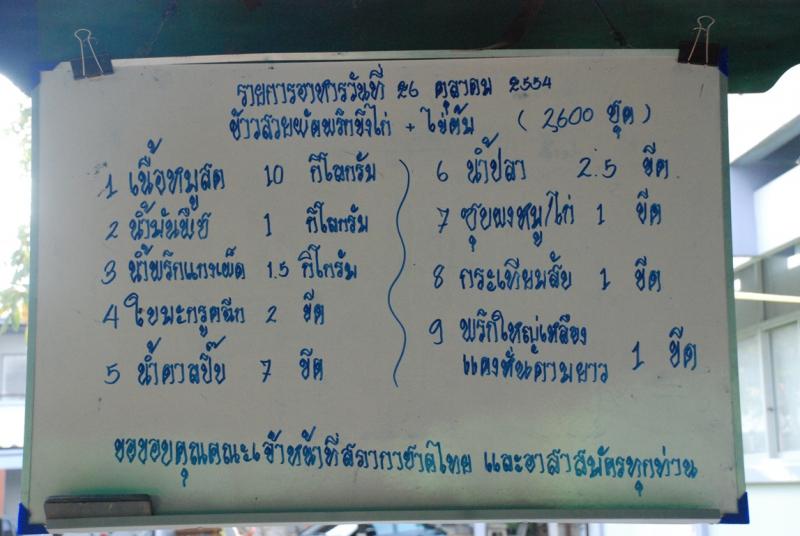 รายการอาหารวันที่ 26 ตุลาคม 2554
ข้าวสวยผัดพริกขิงไก่ + ไข่ต้ม (3,600 ชุด)
1 เนื้อหมูสด 10 กิโลกรัม
2 น้ำมันพืช 1 กิโลกรัม
3 น้ำพริกแกงเผ็ด 1.5 กิโกรัม
4 ใบมะกรูดฉีก 2 ขีด
5 น้ำตาลปี๊บ 7 ขีด
6 น้ำปลา 2.5 ขีด
7 ซุบผงหมู/ไก่ 1 ขีด
8 กระเทียมสับ 1 ขีด
9 พริกใหญ่เหลือง
แดงหั่นตามยาว 1 ขีด
ขอขอบคุณคณะเจ้าหน้าที่สภากาชาดไทย และอาสาสมัครทุกท่าน